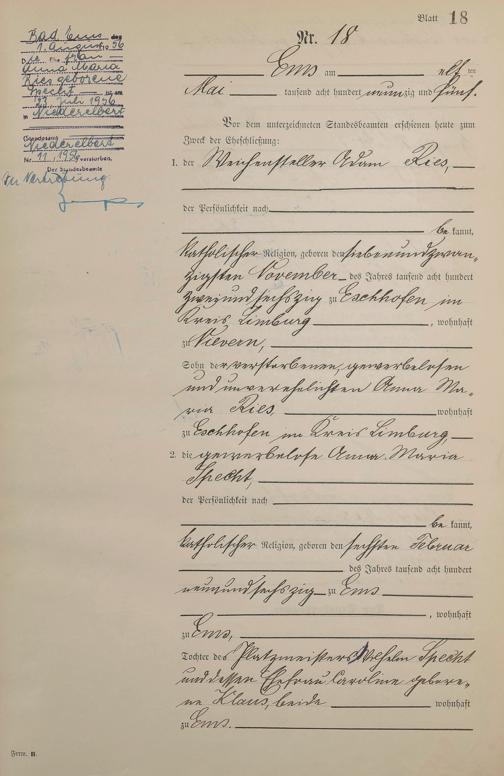 Blatt 18
Nr. 18
Bad Ems, den
1. August 1956
Die Frau
Anna Maria
Ries geborene
Specht ist am
Juli 1956
in Niederelbert
Standesamt
Niederelbert
Nr. 11, 1956 verstorben.
Der Standesbeamte
In Vertretung
Ems am elf ten
Mai tausend acht hundert neunzig und fünf.
Vor dem unterzeichneten Standesbeamten erschienen heute zum
Zweck der Eheschließung:
1. der Weichensteller Adam Ries,
der Persönlichkeit nach
be kannt,
katholischer Religion, geboren den siebenundzwan-
zigsten November des Jahres tausend acht hundert
zweiundsechszig zu Eschhofen im
Kreis Limburg, wohnhaft
zu Nievern,
Sohn der verstorbenen, gewerbelosen
und unverehelichten Anna Ma-
ria Ries, wohnhaft
zu Eschhofen im Kreis Limburg
2. die gewerbelose Anna Maria
Specht,
der Persönlichkeit nach
be kannt,
katholischer Religion, geboren den sechsten Februar
des Jahres tausend acht hundert
neunundsechszig zu Ems
, wohnhaft
zu Ems,
Tochter des Platzmeisters Wilhelm Specht
und dessen Ehefrau Caroline gebore-
ne Klaus, beide wohnhaft
zu Ems.
Form. B.